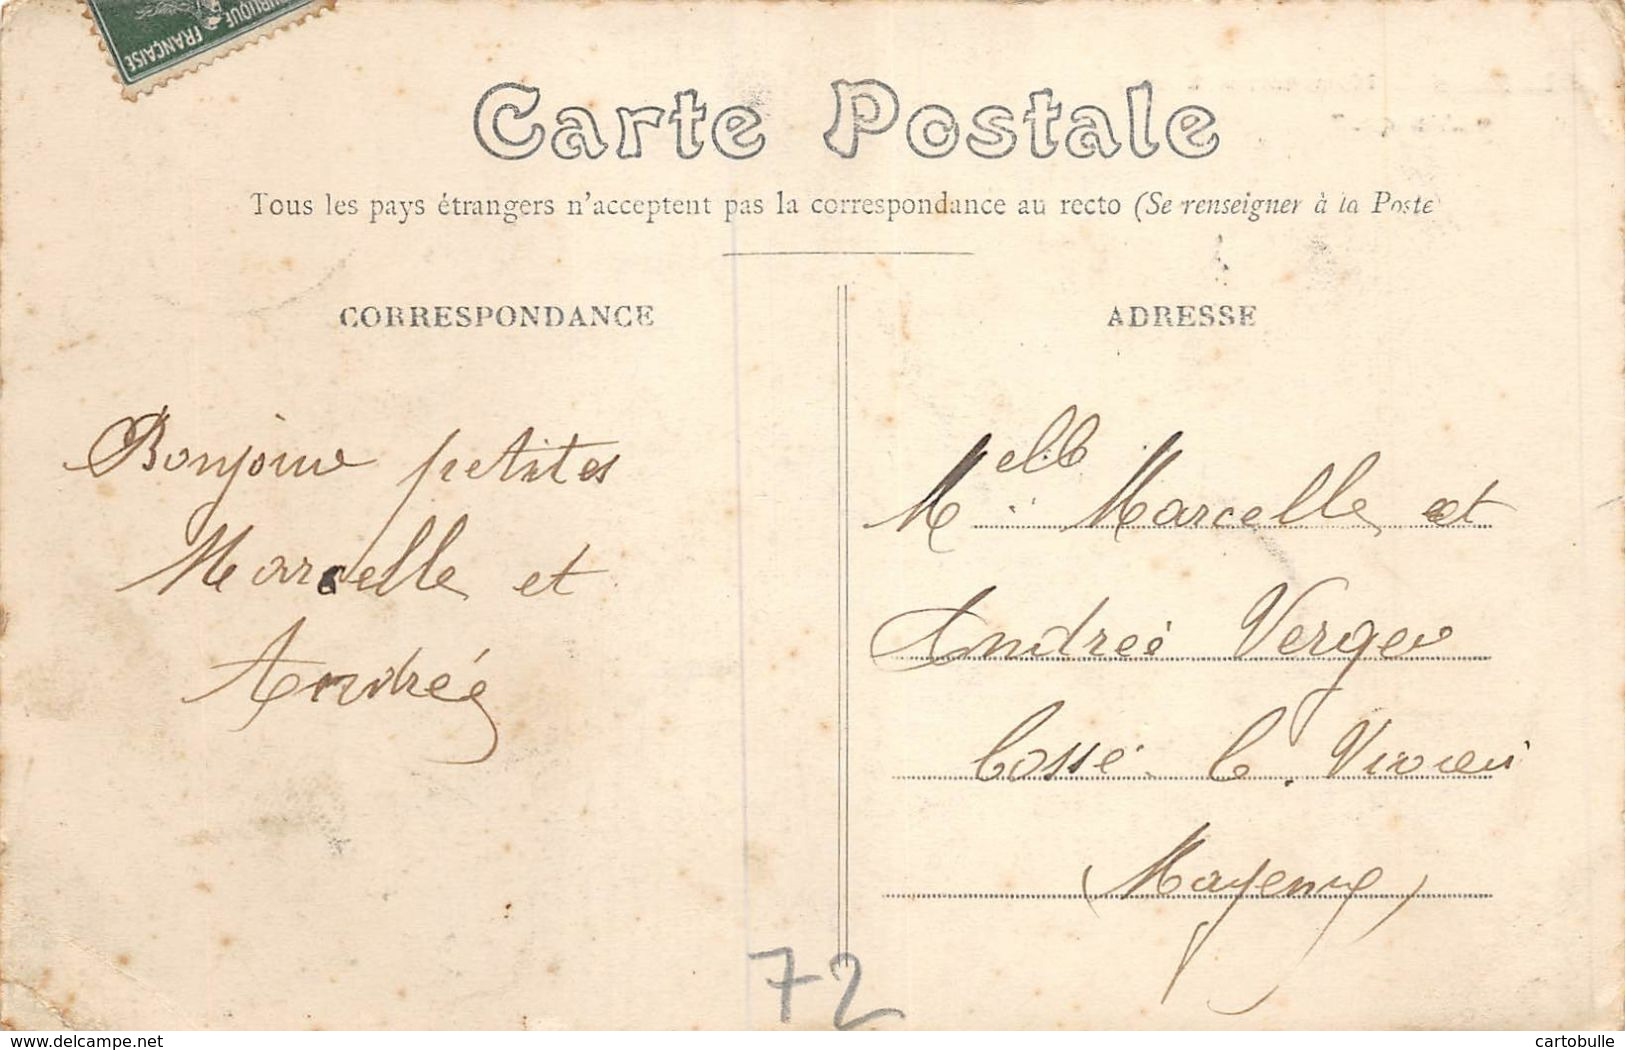 RÉPUBLIQUE FRANÇAISE
Carte Postale
Tous les pays étrangers n'acceptent pas la correspondance au recto (Se renseigner à la Poste)
CORRESPONDANCE
Bonjour petites
Marcelle et
Andrée
ADRESSE
Melle Marcelle et
Andrée Verger
Cossé. le. Vivien
(Mayenne)
72
www.delcampe.net
cartobulle